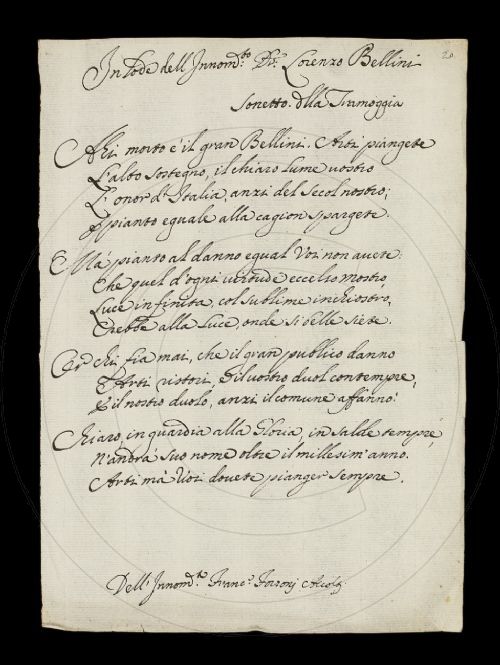 In Lode dell'Innom.to Dr. Lorenzo Bellini
20
Sonetto. dlla Tramoggia
Ahi morto è il gran Bellini. Arti piangete
L'alto sostegno, il chiaro lume vostro
L'onor d'Italia, anzi del Secol nostro;
E pianto eguale alla cagion spargete.
Mà pianto al danno egual Voi non avete:
Che quel d'ogni virtude eccelso mostro
Luce infinita, col sublime inchiostro,
Crebbe alla Luce, onde si belle siete.
Or chi fia mai, che il gran publico danno
Arti ristori, e il vostro duol contempre,
E il nostro duolo, anzi il comune affanno?
Chiaro, in guardia alla Gloria, in salde tempre,
N'andrà suo nome oltre il millesim'anno.
Arti mà Voi dovete pianger sempre.
Dell'Innom.to Franc.o Forzoni Accolti